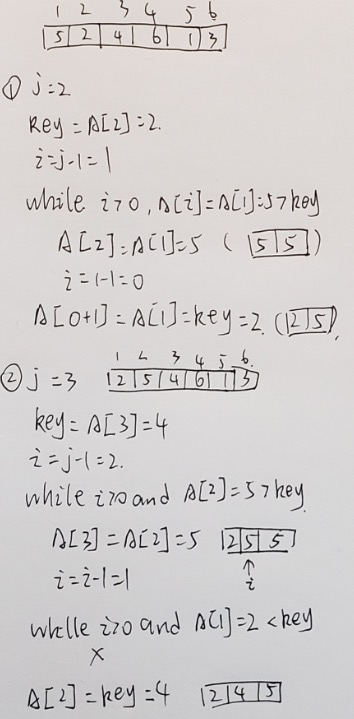 1 2 3 4 5 6
5 2 4 6 1 3
① j=2
key = A[2]=2.
i=j-1=1
while i>0, A[i]=A[1]=5>key
A[2]=A[1]=5 ( 5 5 )
i=1-1=0
A[0+1]=A[1]=key=2. ( 2 5 )
1 2 3 4 5 6.
② j=3 2 5 4 6 1 3
key=A[3]=4
i=j-1=2.
while i>0 and A[2]=5>key.
A[3]=A[2]=5 2 5 5
i=i-1=1 ↑
i
while i>0 and A[1]=2<key
×
A[2]=key=4 2 4 5